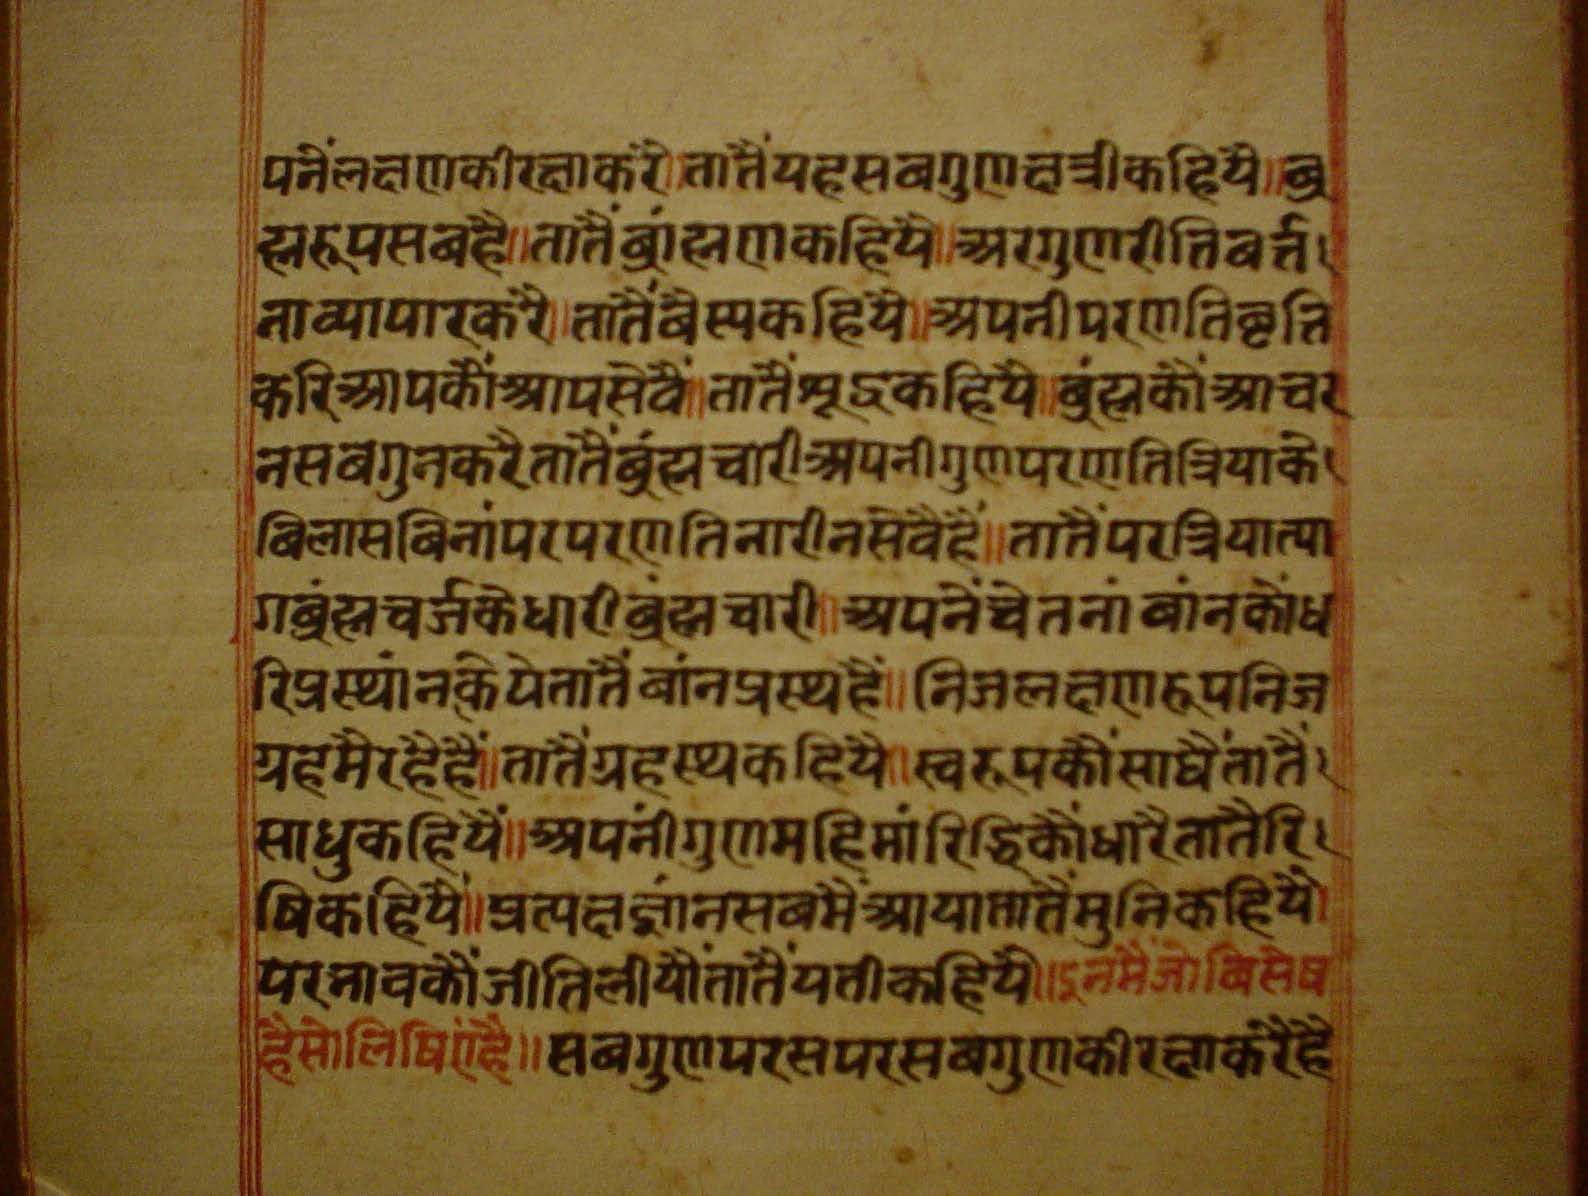 पनेंलक्षणकीरक्षाकरे॥तातैंयहसबगुणक्षत्रीकहियै॥ब्र
ह्मरूपसबहै॥तातैंब्रांह्मणकहियै॥अरगुणरीतिबर्त्त
नाव्यापारकरै॥तातैंबैस्यकहियै॥अपनीपरणतिबृत्ति
करिआपकौंआपसेवैं॥तातैंशूद्रकहियै॥ब्रंह्मकौंआचर
नसबगुनकरैतातैंब्रंह्मचारीअपनीगुणपरणतित्रियाके
बिलासबिनांपरपरणतिनारीनसेवैहैं॥तातैंपरत्रियात्या
गब्रंह्मचर्जकेधारीब्रंह्मचारी॥अपनेंचेतनांबांनकौंध
रिप्रस्थांनकेयेतातैंबांनप्रस्थहैं॥निजलक्षणरूपनिज
ग्रहमैरहैहैं॥तातैंग्रहस्थकहियै॥स्वरूपकौंसाधैंतातैं
साधुकहियैं॥अपनींगुणमहिमांरिद्धिकौंधारैतातैरि
षिकहियैं॥प्रत्यक्षज्ञांनसबमैंआयातातैंमुनिकहियै
परभावकौंजीतिलीयौंतातैंयतीकहियै॥इनमैंजोबिसेष
हैसोलिषिएंहै॥सबगुणपरसपरसबगुणकीरक्षाकरैहै